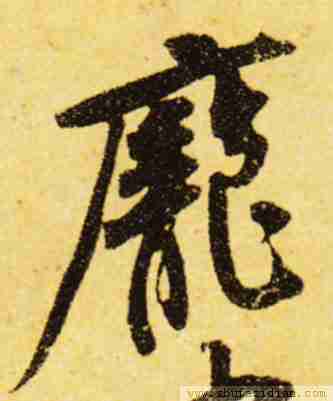 龐
www.shufazidian.com